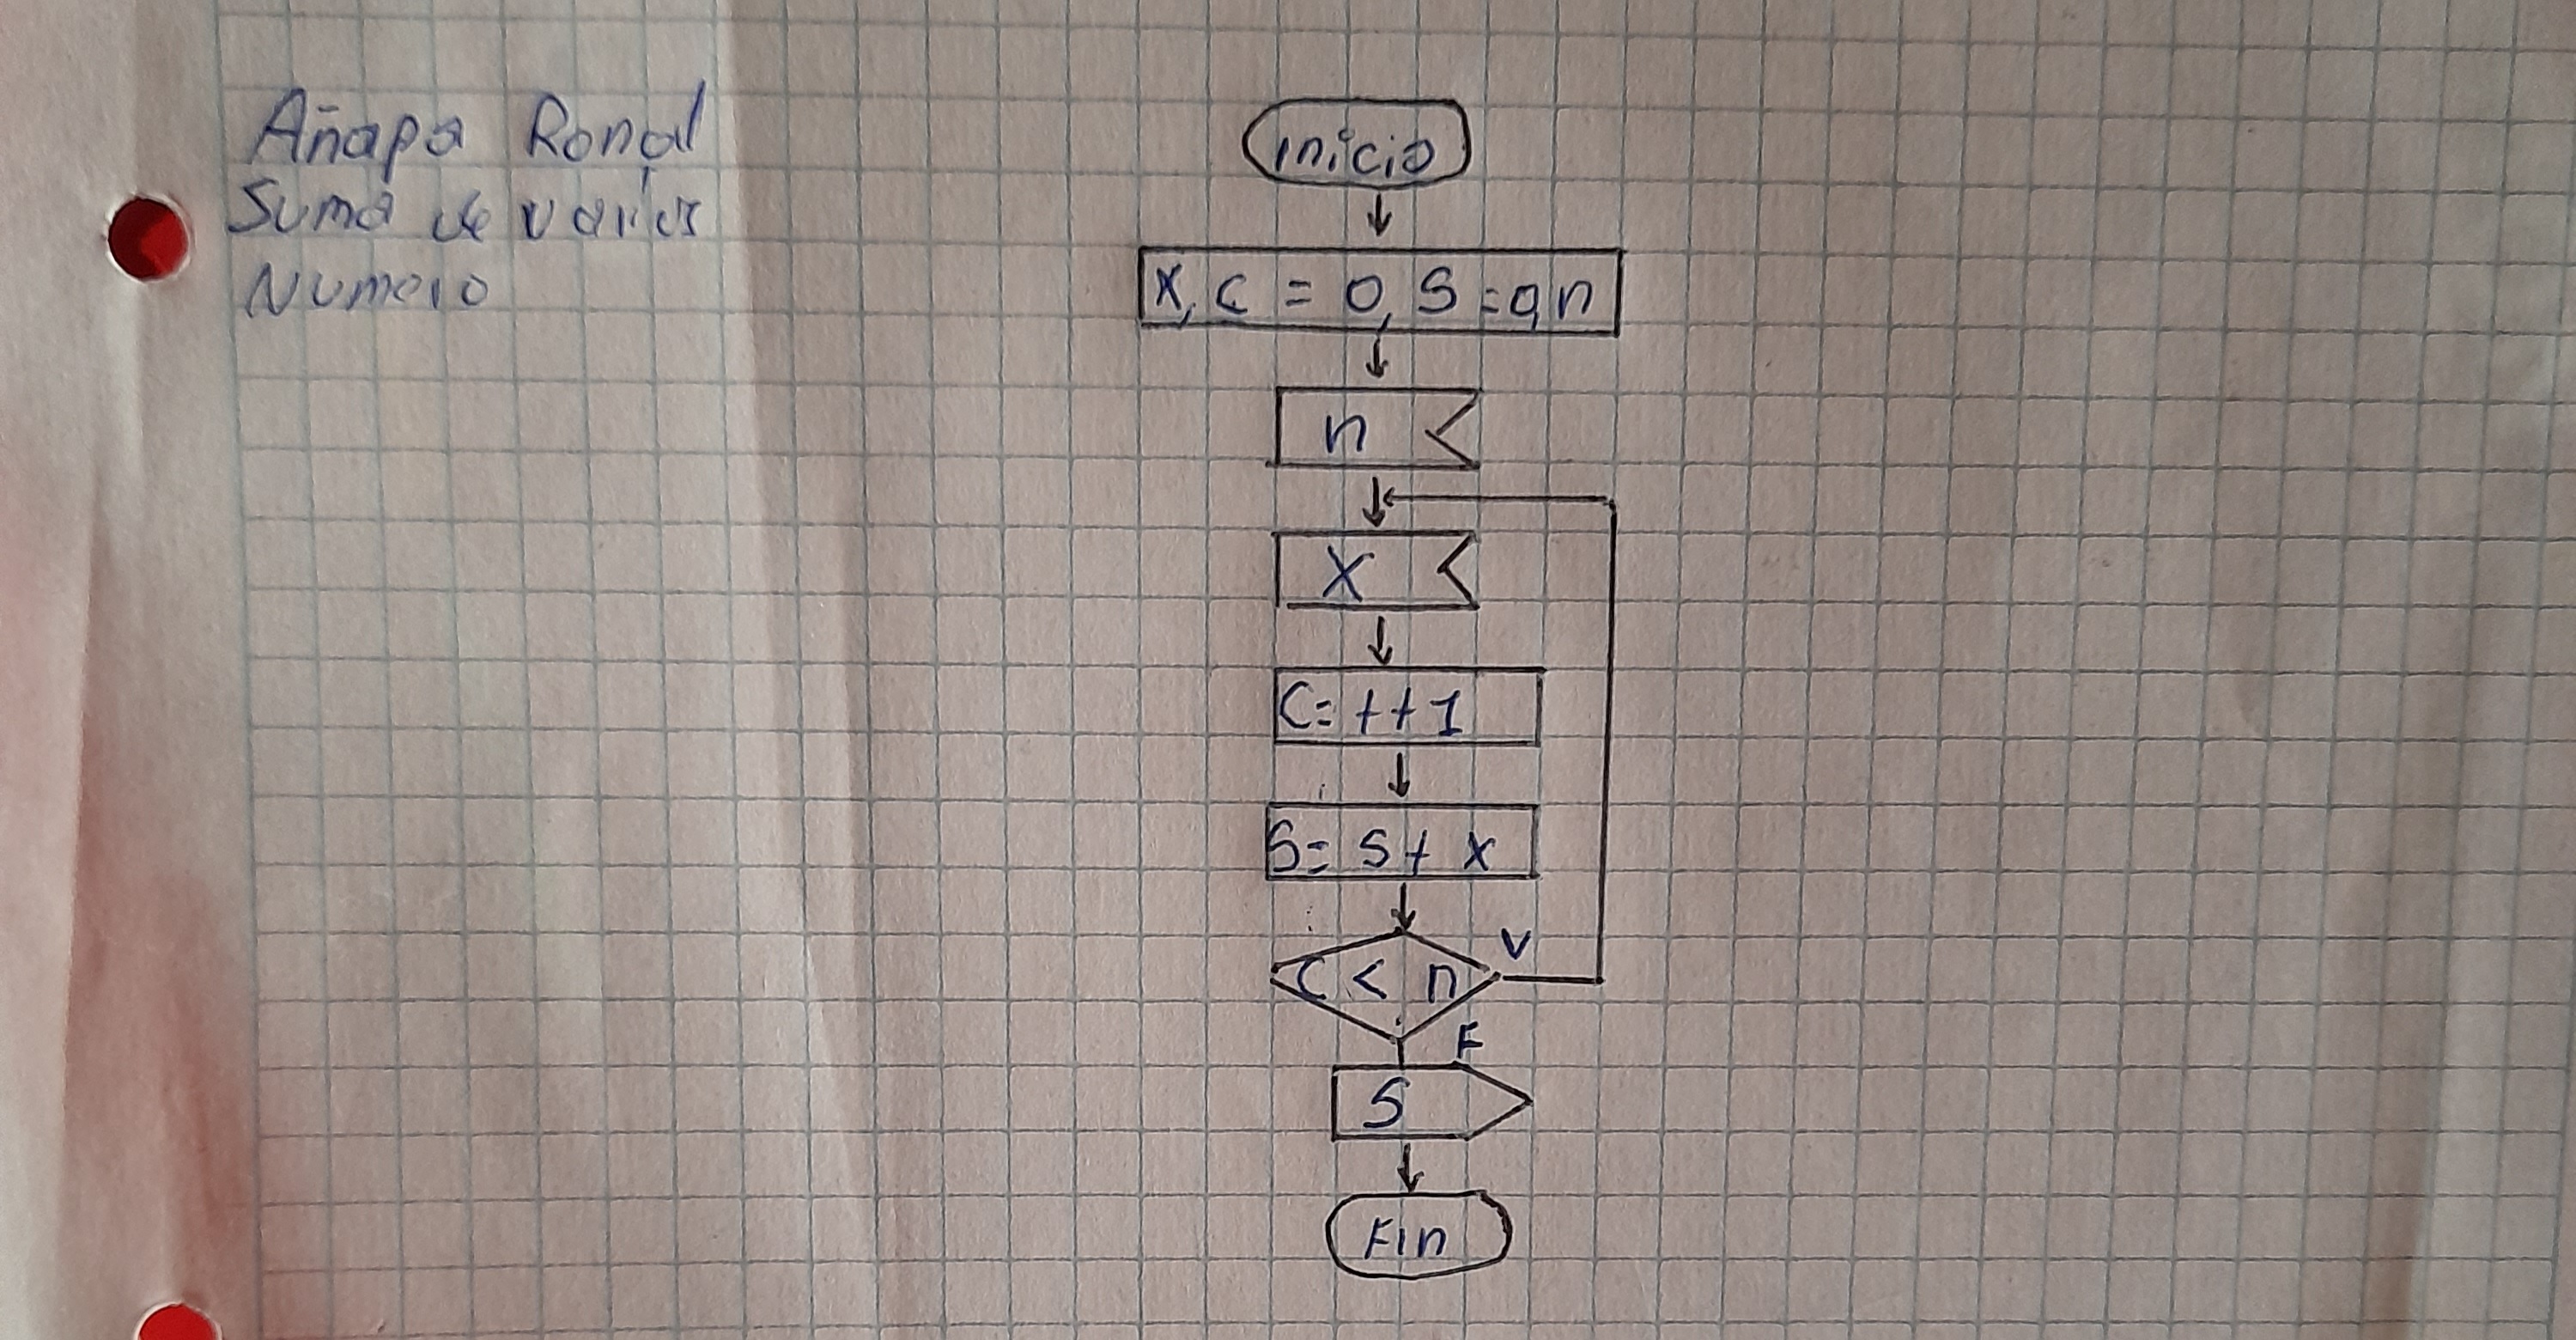 Añapa Ronal
Suma de varios
Numero
inicio
X, C = 0, S = 0, n
n
X
C= ++1
S= S + x
C < n
V
F
S
Fin